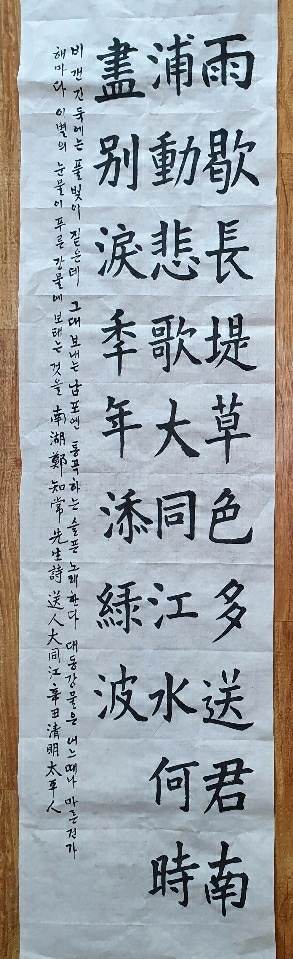 雨歇長堤草色多送君南
浦動悲歌大同江水何時
盡别淚年年添綠波
비 갠 긴 둑에는 풀빛이 짙은데 그대 보내는 남포엔 통곡하는 슬픈 노래한다 대동강물은 어느때나 마를건가
해마다 이별의 눈물이 푸른 강물에 보태는 것을 南湖鄭知常先生詩 送人大同江 辛丑清明太平人